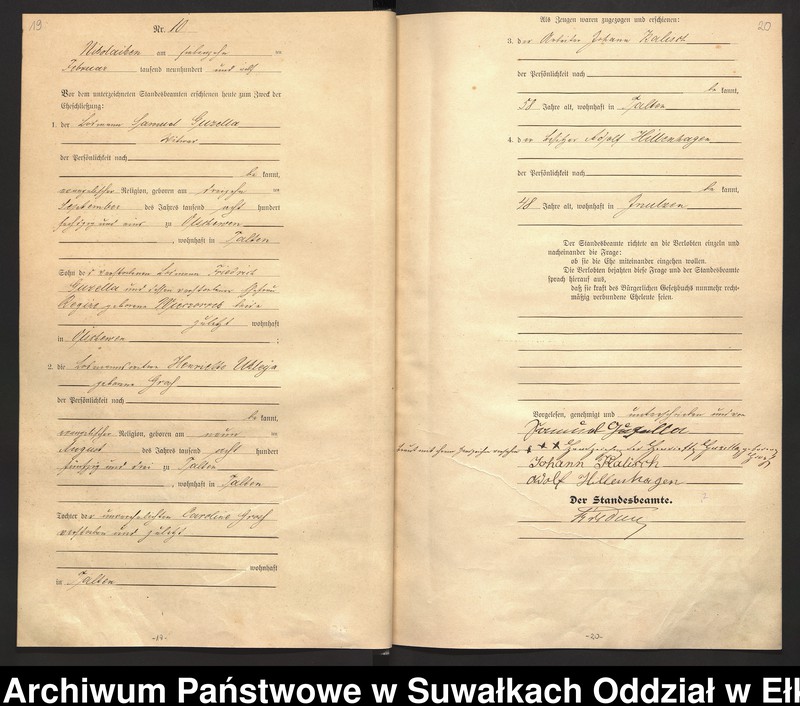 19
Nr. 10
Nikolaiken am siebzehn ten
Februar tausend neunhundert und elf
Vor dem unterzeichneten Standesbeamten erschienen heute zum Zweck der
Eheschließung:
1. der Losmann Samuel Guzella
Witwer
der Persönlichkeit nach
be kannt,
evangelischer Religion, geboren am dreizehn ten
September des Jahres tausend acht hundert
sechzig und eins zu
, wohnhaft in Talten
Sohn des verstorbenen Losmann Friedrich
Guzella und dessen verstorbener Ehefrau
Regine geborene beide
zuletzt wohnhaft
in
2. die Losmannswitwe Henriette Ukleja
geborene Groß
der Persönlichkeit nach
be kannt,
evangelischer Religion, geboren am neun ten
August des Jahres tausend acht hundert
fünfzig und drei zu Talten
, wohnhaft in Talten
Tochter der unverehelichten Caroline Groß
verstorben und zuletzt
wohnhaft
in Talten
-19-
20
Als Zeugen waren zugezogen und erschienen:
3. der Arbeiter Johann Kalisch
der Persönlichkeit nach
be kannt,
58 Jahre alt, wohnhaft in Talten
4. der Besitzer Adolf Hillenhagen
der Persönlichkeit nach
be kannt,
48 Jahre alt, wohnhaft in
Der Standesbeamte richtete an die Verlobten einzeln und
nacheinander die Frage:
ob sie die Ehe miteinander eingehen wollen.
Die Verlobten bejahten diese Frage und der Standesbeamte
sprach hierauf aus,
daß sie kraft des Bürgerlichen Gesetzbuchs nunmehr recht-
mäßig verbundene Eheleute seien.
Vorgelesen, genehmigt und unterschrieben und von
Samuel Guzella
+++ Handzeichen der Henriette Guzella geborene Groß
Johann Kalisch
Adolf Hillenhagen
Der Standesbeamte.
-20-
Archiwum Państwowe w Suwałkach Oddział w Ełk